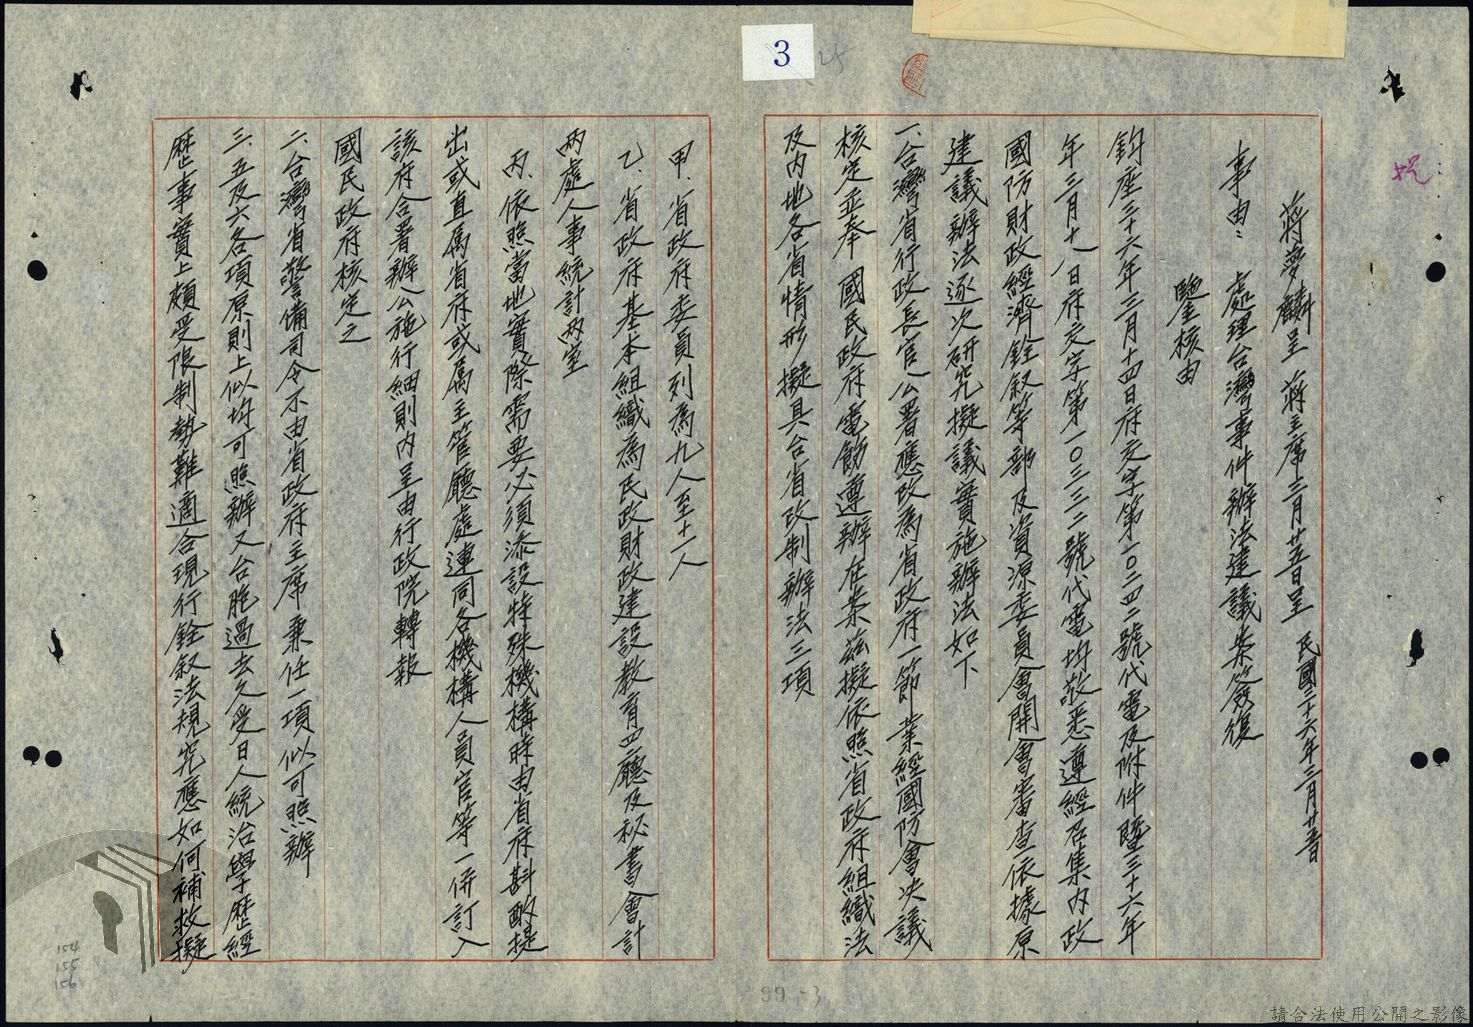 3
蔣夢麟呈 蔣主席三月廿五日呈 民國三十六年三月廿五日
事由:處理台灣事件辦法建議案簽復
鑒核由
鈞座三十六年三月十四日府交字第一〇二四二號代電及附件暨三十六年
年三月十八日府交字第一〇三三二號代電均敬悉遵經召集內政
國防財政經濟銓敘等部及資源委員會開會審查依據原
建議辦法逐次研究擬議實施辦法如下
一、台灣省行政長官公署應改為省政府一節業經國防會決議
核定並奉 國民政府電飭遵辦在案茲擬依照省政府組織法
及內地各省情形擬具台省改制辦法三項
甲、省政府委員列為九人至十一人
乙、省政府基本組織為民政財政建設教育四廳及秘書會計
兩處人事統計兩室
丙、依照當地實際需要必須添設特殊機構時由省府斟酌提
出或直屬省府或屬主管廳處連同各機構人員官等一併訂入
該府合署辦公施行細則內呈由行政院轉報
國民政府核定之
二、台灣省警備司令不由省政府主席兼任一項似可照辦
三、五及六各項原則上似均可照辦又台胞過去久受日人統治學歷經
歷事實上頗受限制勢難適合現行銓敘法規究應如何補救擬
99-3
154
155
156
請合法使用公開之影像